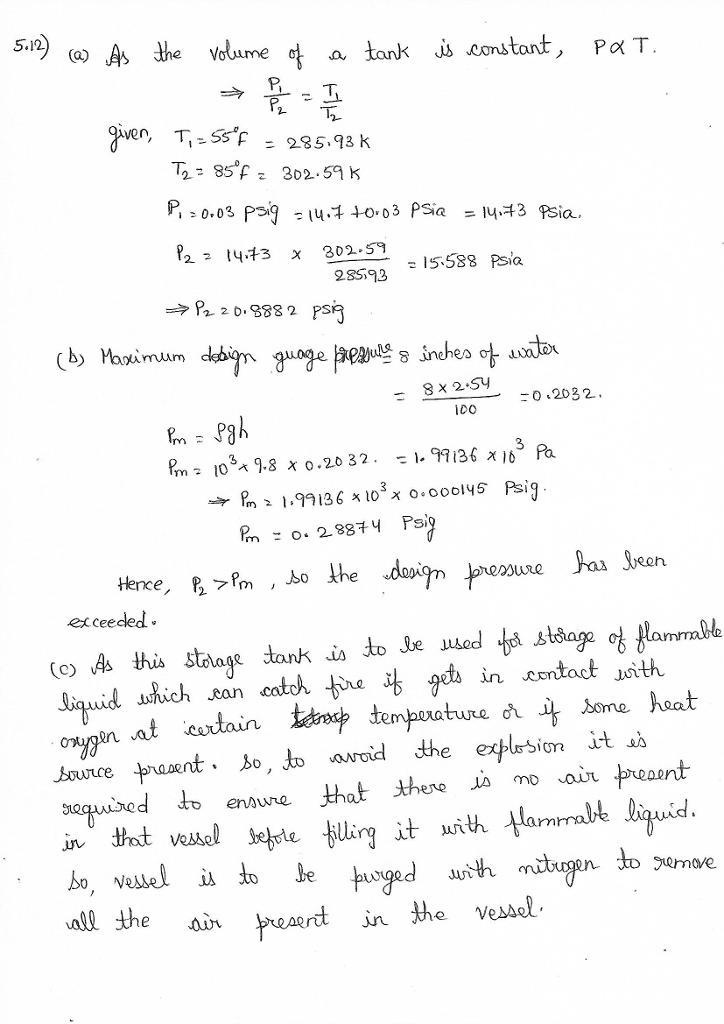 5.12) (a) As the volume of a tank is constant, P∝T.
⇒ P₁/P₂ = T₁/T₂
given, T₁ = 55°F = 285.93 K
T₂ = 85°F = 302.59 K
P₁ = 0.03 psig = 14.7 + 0.03 Psia = 14.73 Psia.
P₂ = 14.73 × 302.59/285.93 = 15.588 Psia
⇒ P₂ = 0.8882 psig
(b) Maximum design guage pressure = 8 inches of water
= 8 × 2.54/100 = 0.2032.
Pm = ρgh
Pm = 10³ × 9.8 × 0.2032. = 1.99136 × 10³ Pa
⇒ Pm = 1.99136 × 10³ × 0.000145 Psig.
Pm = 0.28874 Psig
Hence, P₂ > Pm, so the design pressure has been
exceeded.
(c) As this storage tank is to be used for storage of flammable
liquid which can catch fire if gets in contact with
oxygen at certain temperature or if some heat
source present. So, to avoid the explosion it is
required to ensure that there is no air present
in that vessel before filling it with flammable liquid.
So, vessel is to be purged with nitrogen to remove
all the air present in the vessel.